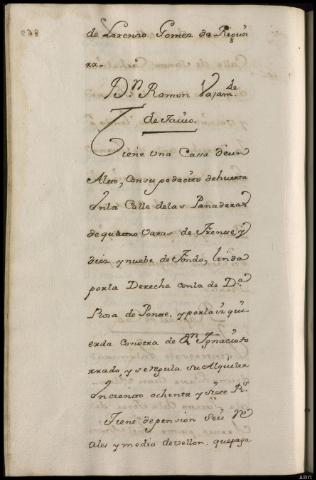 de Larenzo Gomez de Requi
xa.
Dn. Ramon
de
Tiene una Cassa de un
Alto, con su pedacito de huerta
en la Calle de las Panaderas
de quatro varas de Frente y
diez y nuebe de Fondo, linda
por la Derecha con la de Da.
Rosa de Ponse, y por la izqui
erda con otra de Dn. Ignacio to
rrado, y se regula su Alquiler
en ciento ochenta y siete Rs.
Tiene de pension seis Re
ales y medio de vellon, que paga